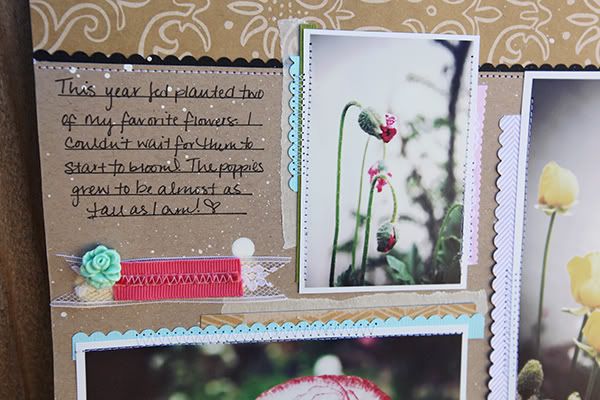 This year Jed planted two
of my favorite flowers. I
couldn't wait for them to
start to bloom! The poppies
grew to be almost as
tall as I am! ♡